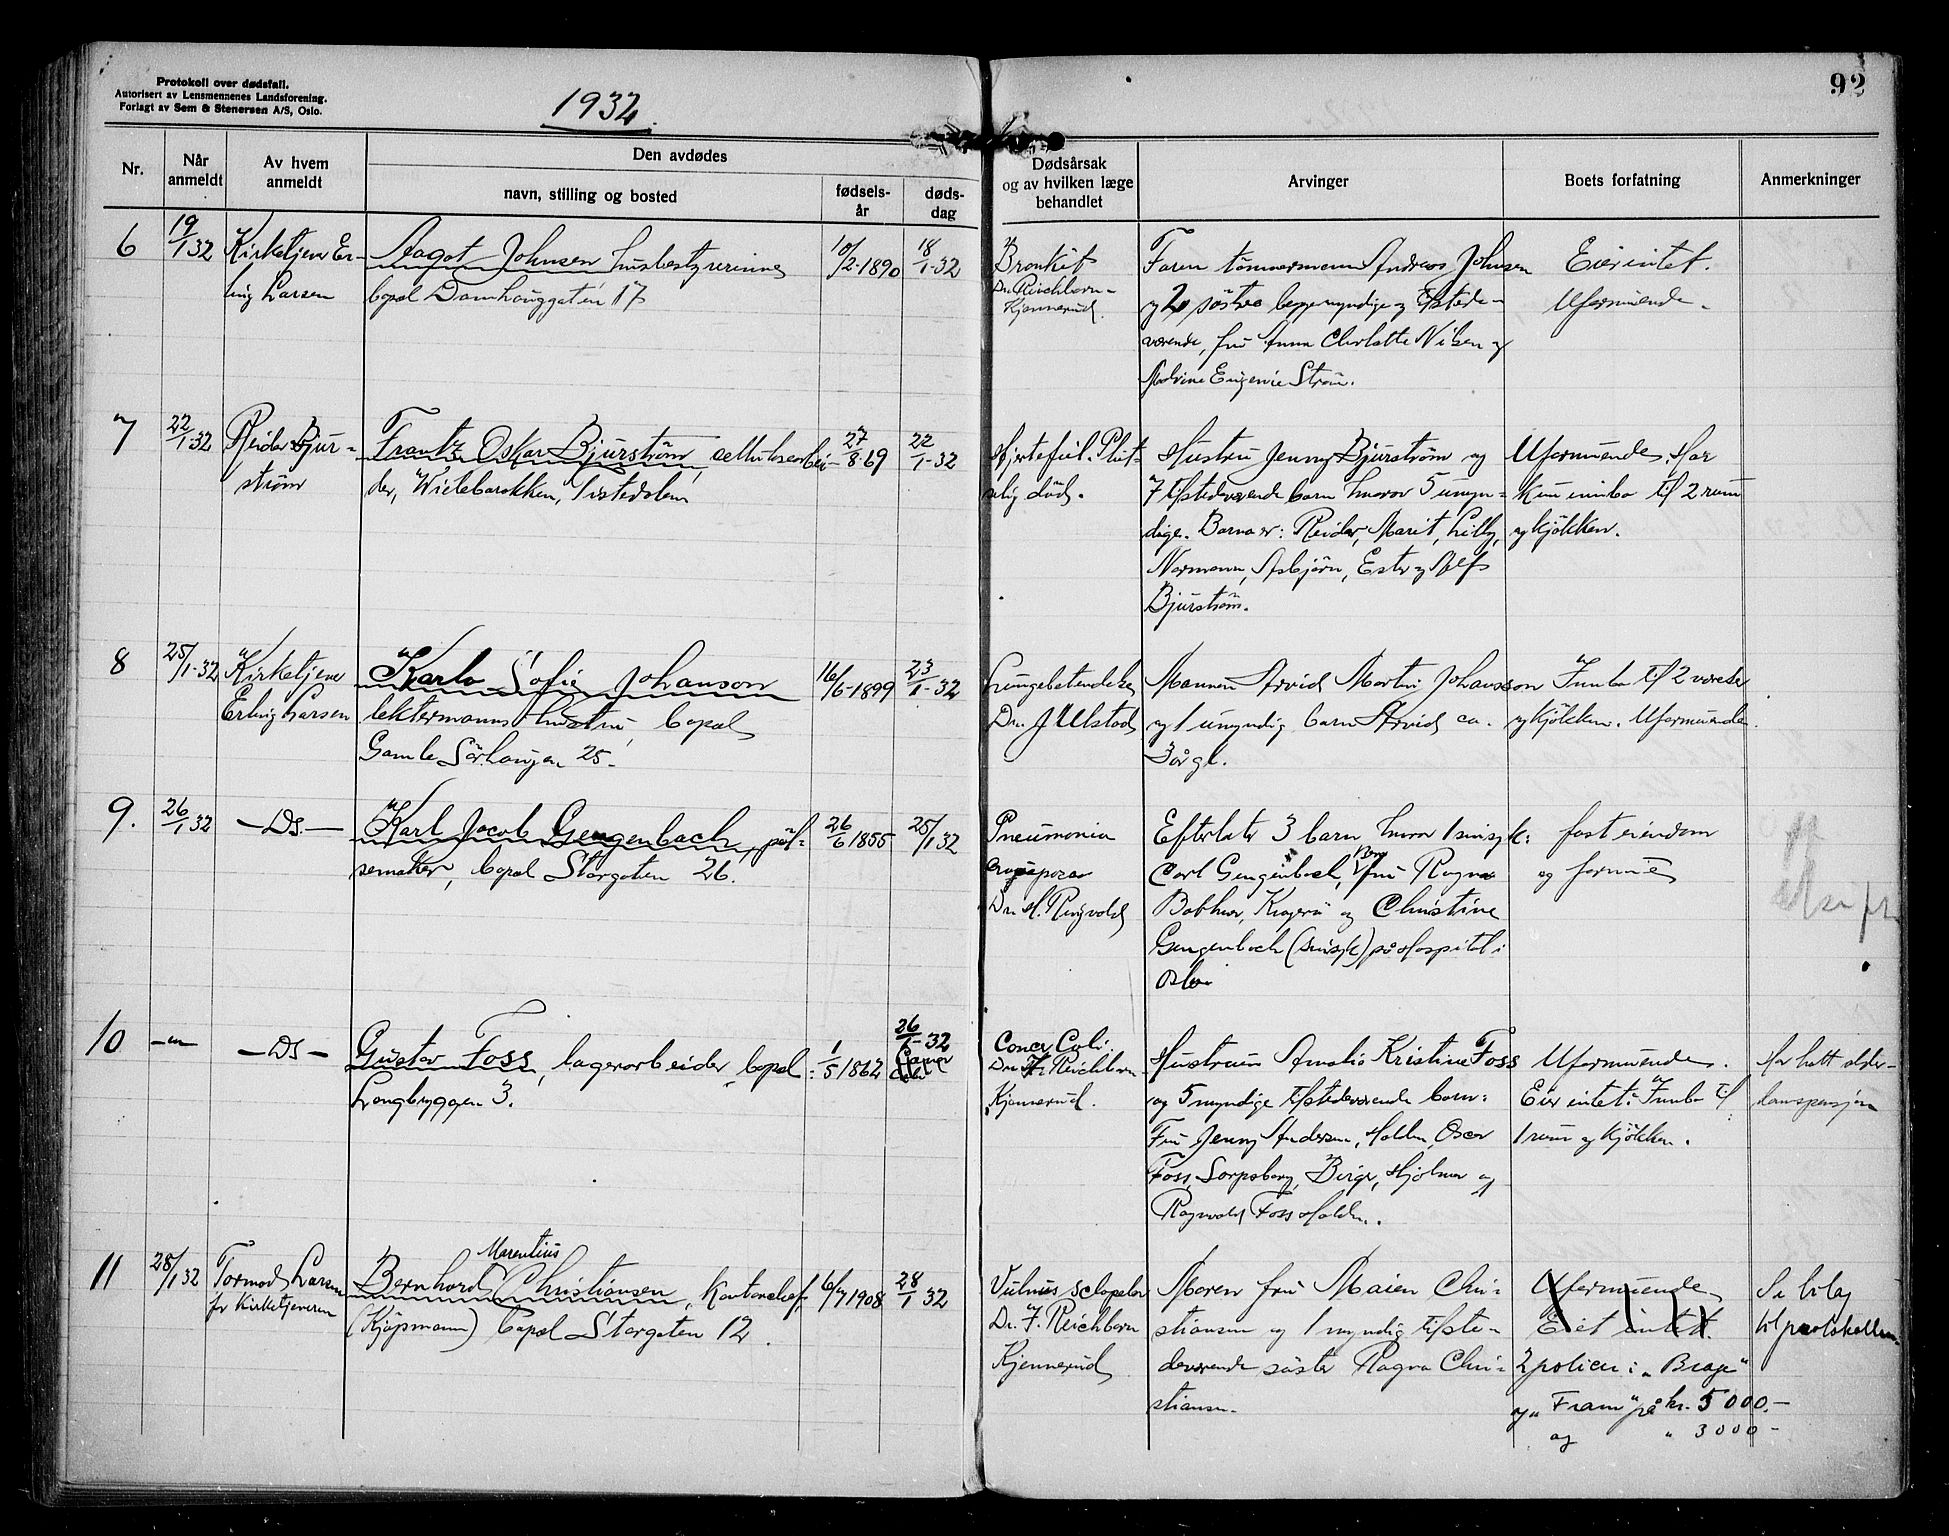 Protokoll over dødsfall.
Autorisert av Lensmennenes Landsforening.
Forlagt av Sem & Stenersen A/S, Oslo.
1932.
92
Nr.
Når anmeldt
Av hvem anmeldt
Den avdødes
navn, stilling og bosted
fødsels-år
døds-dag
Dødsårsak og av hvilken læge behandlet
Arvinger
Boets forfatning
Anmerkninger
6
19/1 32
Kirketjener Er-
ling Larsen
Aagot Johnsen husbestyrerinne
bopæl Damhauggaten 17
10/2-1890
18/1-32
Bronkit
Dr. Reichborn-
Kjennerud.
Faren tømmermann Andreas Johnsen
og 2 søstre begge myndige og tilstede-
værende, fru Anna Charlotte Nilsen og
Eugenie Strøm.
Eier intet.
Uformuende.
7
22/1 32
Reidar Bjur-
strøm
Frantz Oskar Bjurström, cellulosearbei-
der, Wielebarakken, Tistedalen
27/8-69
22/1-32
Hjertefeil. Plut-
selig død.
Hustru Jenny Bjurstrøm og
7 tilstedeværende barn hvorav 5 umyn-
dige. Barna er: Reidar, Marit, Lilly,
Normann, Asbjørn, Ester og Alf
Bjurstrøm.
Uformuende. Har
kun innbo til 2 rum
og kjøkken.
8
25/1-32
Kirketjener
Erling Larsen
Karla Sofie Johanson
lektermanns hustru, bopæl
Gamle Sørhaugen 25.
16/6-1899
23/1-32
Lungebetendelse
Dr. J Ulstad
Mannen Arvid Martin Johansson
og 1 umyndig barn Arvid ca.
3 år gl.
Innbo til 2 værelser
og kjøkken. Uformuende.
9.
26/1 32
— Ds. —
Karl Jacob Gengenbach, pøl-
semaker, bopæl Storgaten 26.
26/6 1855
25/1 32
Pneumonia
Dr. H. Ringvold
Efterlater 3 barn hvorav 1 sinsyk:
Carl Gengenbach, fru Ragna
Kragerø og Christine
Gengenbach (sinsyk) på Hospital i
Oslo
fast eiendom
og formue
10
— " —
— Ds —
Gustav Foss, lagerarbeider, bopæl:
Langbryggen 3.
1/5 1862
26/1-32
Cancer
Coli
Cancer Coli.
Dr. F. Reichborn
Kjennerud.
Hustruen Amalie Kristine Foss
og 5 myndige tilstedeværende barn:
Fru Jenny Andersen, Halden, Oscar
Foss, Sarpsborg, Birger, Hjalmar og
Ragnvald Foss Halden.
Uformuende.
Eier intet. Innbo til
1 rum og kjøkken.
Har hatt alder-
domspensjon
11
28/1 32
Tormod Larsen
for Kirketjeneren
Marentius
Bernhard Christiansen, Kontorchef
(Kjøpmann) bopæl Storgaten 12.
6/7 1908
28/1 32
Vulnus sclopetar
Dr. F. Reichborn
Kjennerud
Moren fru Maien Chri-
stiansen og 1 myndig tilste-
deværende søster Ragna Chri-
stiansen.
Uformuende
Eiet intet.
2 policer i „Brage"
og „Fram" på kr. 5000.-
og " 3000-
Se bilag
til protokollen.